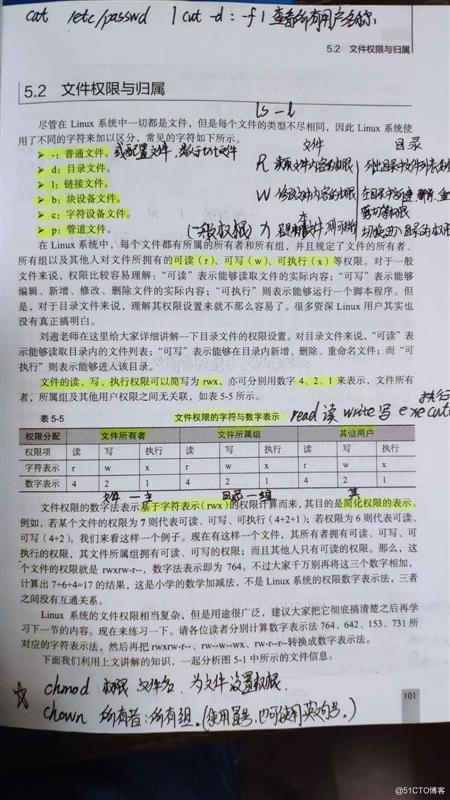 cat /etc/passwd | cut -d : -f 1 查看所有用户名称.
5.2 文件权限与归属
5.2 文件权限与归属
ls -l
尽管在 Linux 系统中一切都是文件，但是每个文件的类型不尽相同，因此 Linux 系统使
用了不同的字符来加以区分，常见的字符如下所示。
文件 目录
-：普通文件。 或配置文件，
d：目录文件。 R 读取文件内容的权限
l：链接文件。
b：块设备文件。 W
c：字符设备文件。
p：管道文件。
在 Linux 系统中，每个文件都有所属的所有者和所有组，并且规定了文件的所有者、
所有组以及其他人对文件所拥有的可读（r）、可写（w）、可执行（x）等权限。对于一般
文件来说，权限比较容易理解：“可读”表示能够读取文件的实际内容；“可写”表示能够
编辑、新增、修改、删除文件的实际内容；“可执行”则表示能够运行一个脚本程序。但
是，对于目录文件来说，理解其权限设置来就不那么容易了。很多资深 Linux 用户其实也
没有真正搞明白。
刘遄老师在这里给大家详细讲解一下目录文件的权限设置。对目录文件来说，“可读”表
示能够读取目录内的文件列表；“可写”表示能够在目录内新增、删除、重命名文件；而“可
执行”则表示能够进入该目录。
文件的读、写、执行权限可以简写为 rwx，亦可分别用数字 4、2、1 来表示，文件所有
者，所属组及其他用户权限之间无关联，如表 5-5 所示。
执行
read 读 write 写
表 5-5 文件权限的字符与数字表示
权限分配 文件所有者 文件所属组 其他用户
权限项 读 写 执行 读 写 执行 读 写 执行
字符表示 r w x r w x r w x
数字表示 4 2 1 4 2 1 4 2 1
文件权限的数字法表示基于字符表示（rwx）的权限计算而来，其目的是简化权限的表示。
例如，若某个文件的权限为 7 则代表可读、可写、可执行（4+2+1）；若权限为 6 则代表可读、
可写（4+2）。我们来看这样一个例子。现在有这样一个文件，其所有者拥有可读、可写、可
执行的权限，其文件所属组拥有可读、可写的权限；而且其他人只有可读的权限。那么，这
个文件的权限就是 rwxrw-r--，数字法表示即为 764。不过大家千万别再将这三个数字相加，
计算出 7+6+4=17 的结果，这是小学的数学加减法，不是 Linux 系统的权限数字表示法，三者
之间没有互通关系。
Linux 系统的文件权限相当复杂，但是用途很广泛，建议大家把它彻底搞清楚之后再学
习下一节的内容。现在来练习一下。请各位读者分别计算数字表示法 764、642、153、731 所
对应的字符表示法，然后再把 rwxrw-r--、rw--w--wx、rw-r--r--转换成数字表示法。
下面我们利用上文讲解的知识，一起分析图 5-1 中所示的文件信息。
chmod 权限 文件名，为文件设置权限.
101
chown 所有者：所有组.（使用冒号，也可使用英句号.）
@51CTO博客